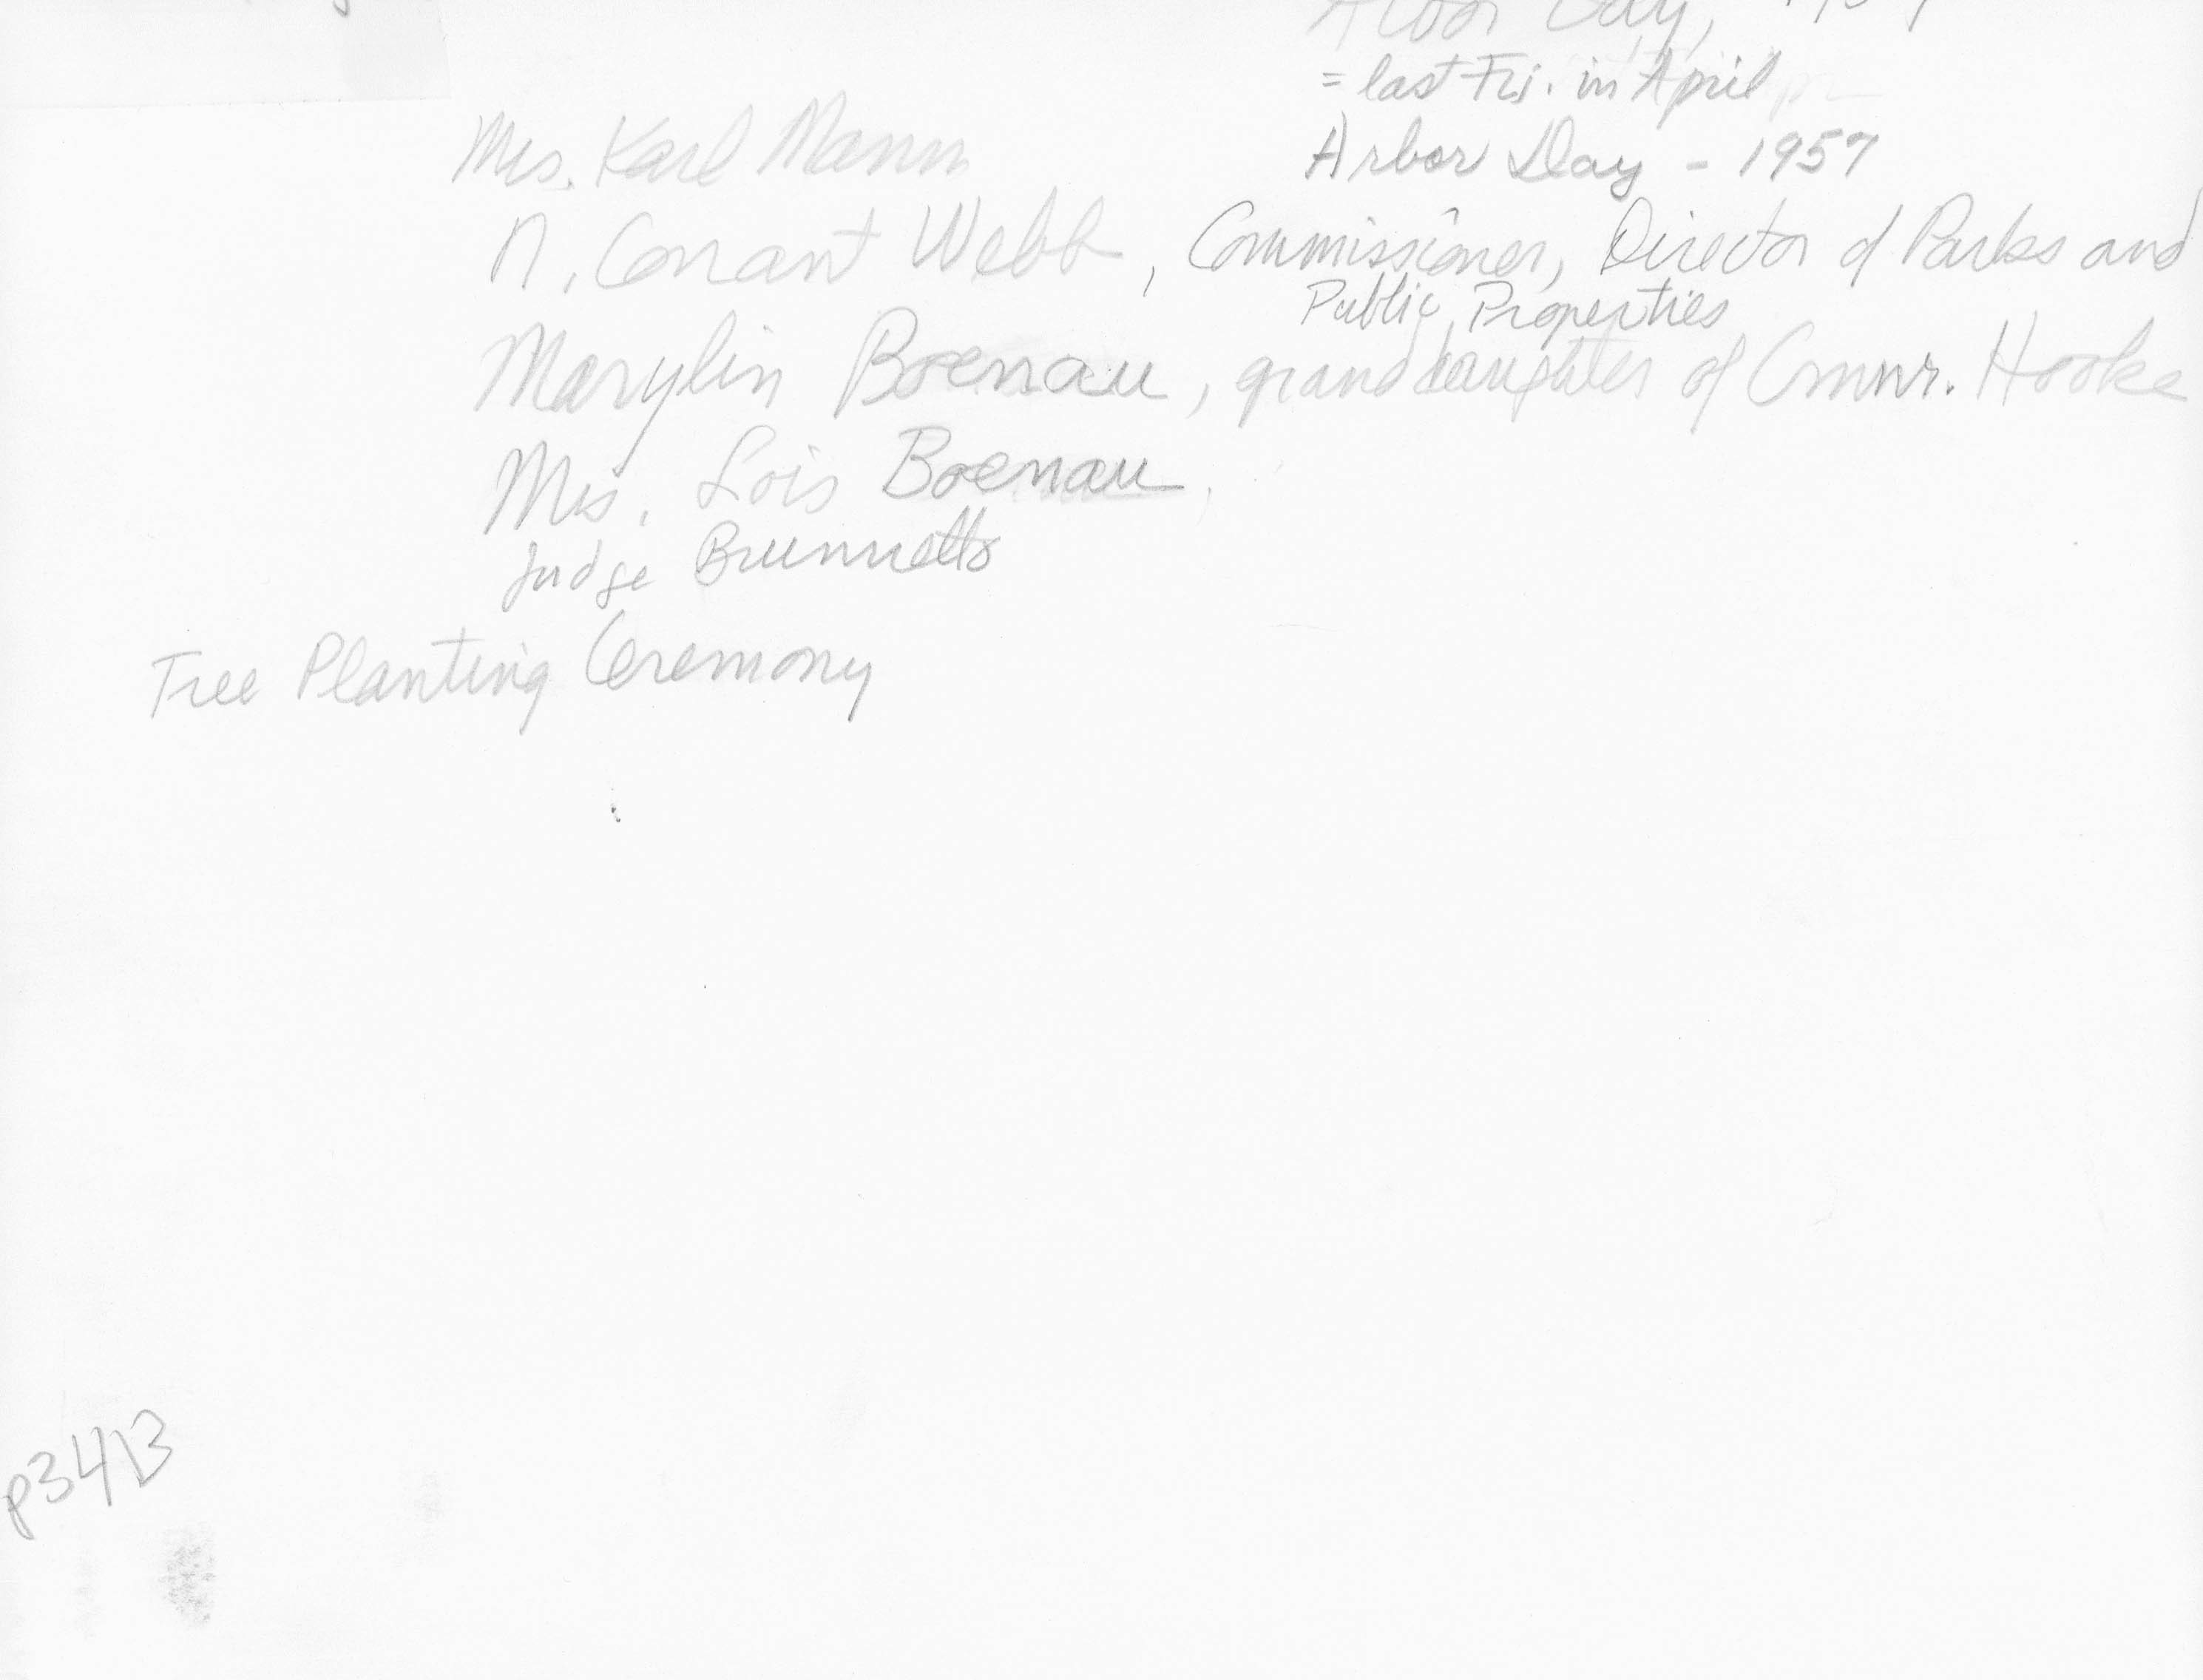 Arbor Day,
= last Fri. in April
Mrs. Karl Mann
Arbor Day - 1957
N. Conant Webb, Commissioner, Director of Parks and
Public Properties
Marylin Boenau, granddaughter of Cmmr. Hooke
Mrs. Lois Boenau
Judge Brunnetto
Tree Planting Ceremony
p3413